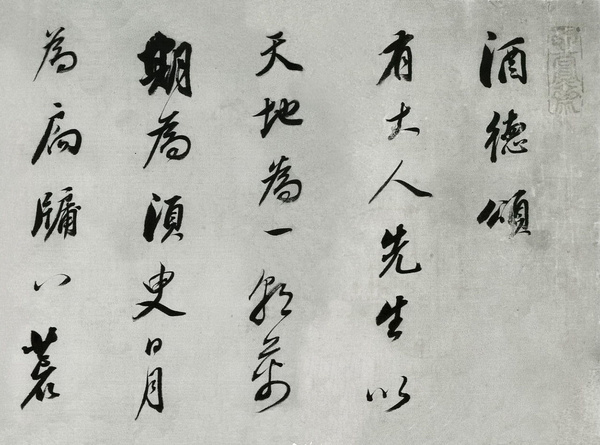 玄賞齋
酒德頌
有大人先生以
天地為一朝萬
期為須臾日月
為扃牖八荒